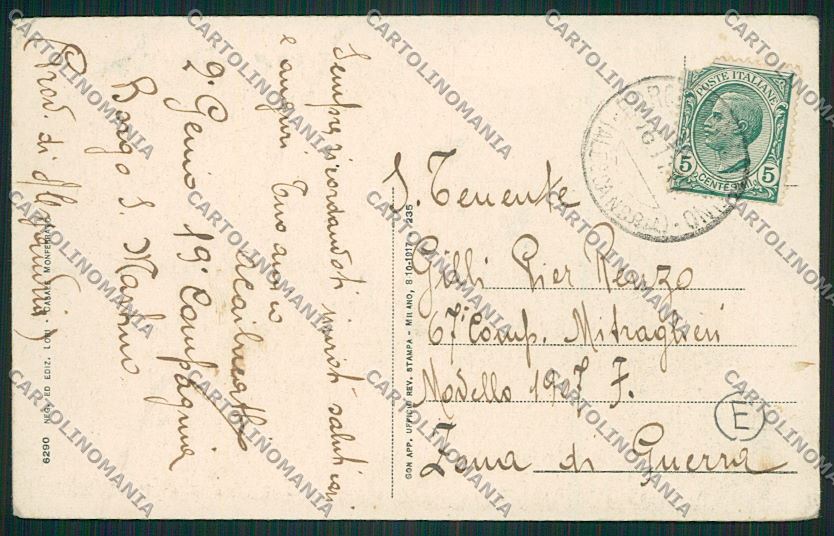 Sempre ricordandoti invioti saluti cari
e auguri Tuo amico
2° Genio 19° Compagnia
Borgo S. Martino
(Prov. di Alessandria)
S. Tenente
Gilli Pier Renzo
67ª Comp. Mitraglieri
Modello 1907 F.
Zona di Guerra
E
POSTE ITALIANE
5 CENTESIMI 5
(ALESSANDRIA)
CON APP. UFFICIO REV. STAMPA - MILANO, 8-10-1917 - 235
6290 NEG. ED EDIZ. LORI - CASALE MONFERRATO
CARTOLINOMANIA